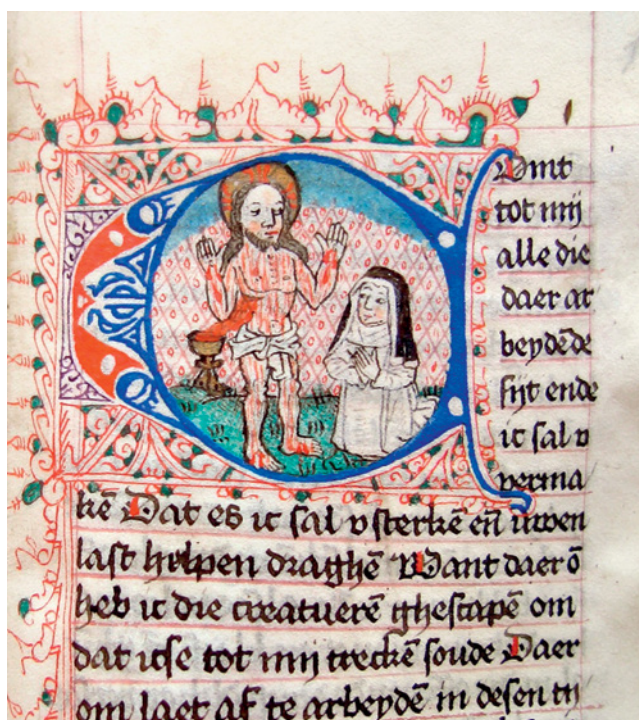 COmt
tot mij
alle die
daer ar
beydēde
sijt ende
ic sal v
verma
kē Dat es ic sal v sterkē eñ uwen
last helpen draghē Want daer ō
heb ic die creatuerē ghescapē om
dat icse tot mij treckē soude Daer
om laet af te arbeydē in desen